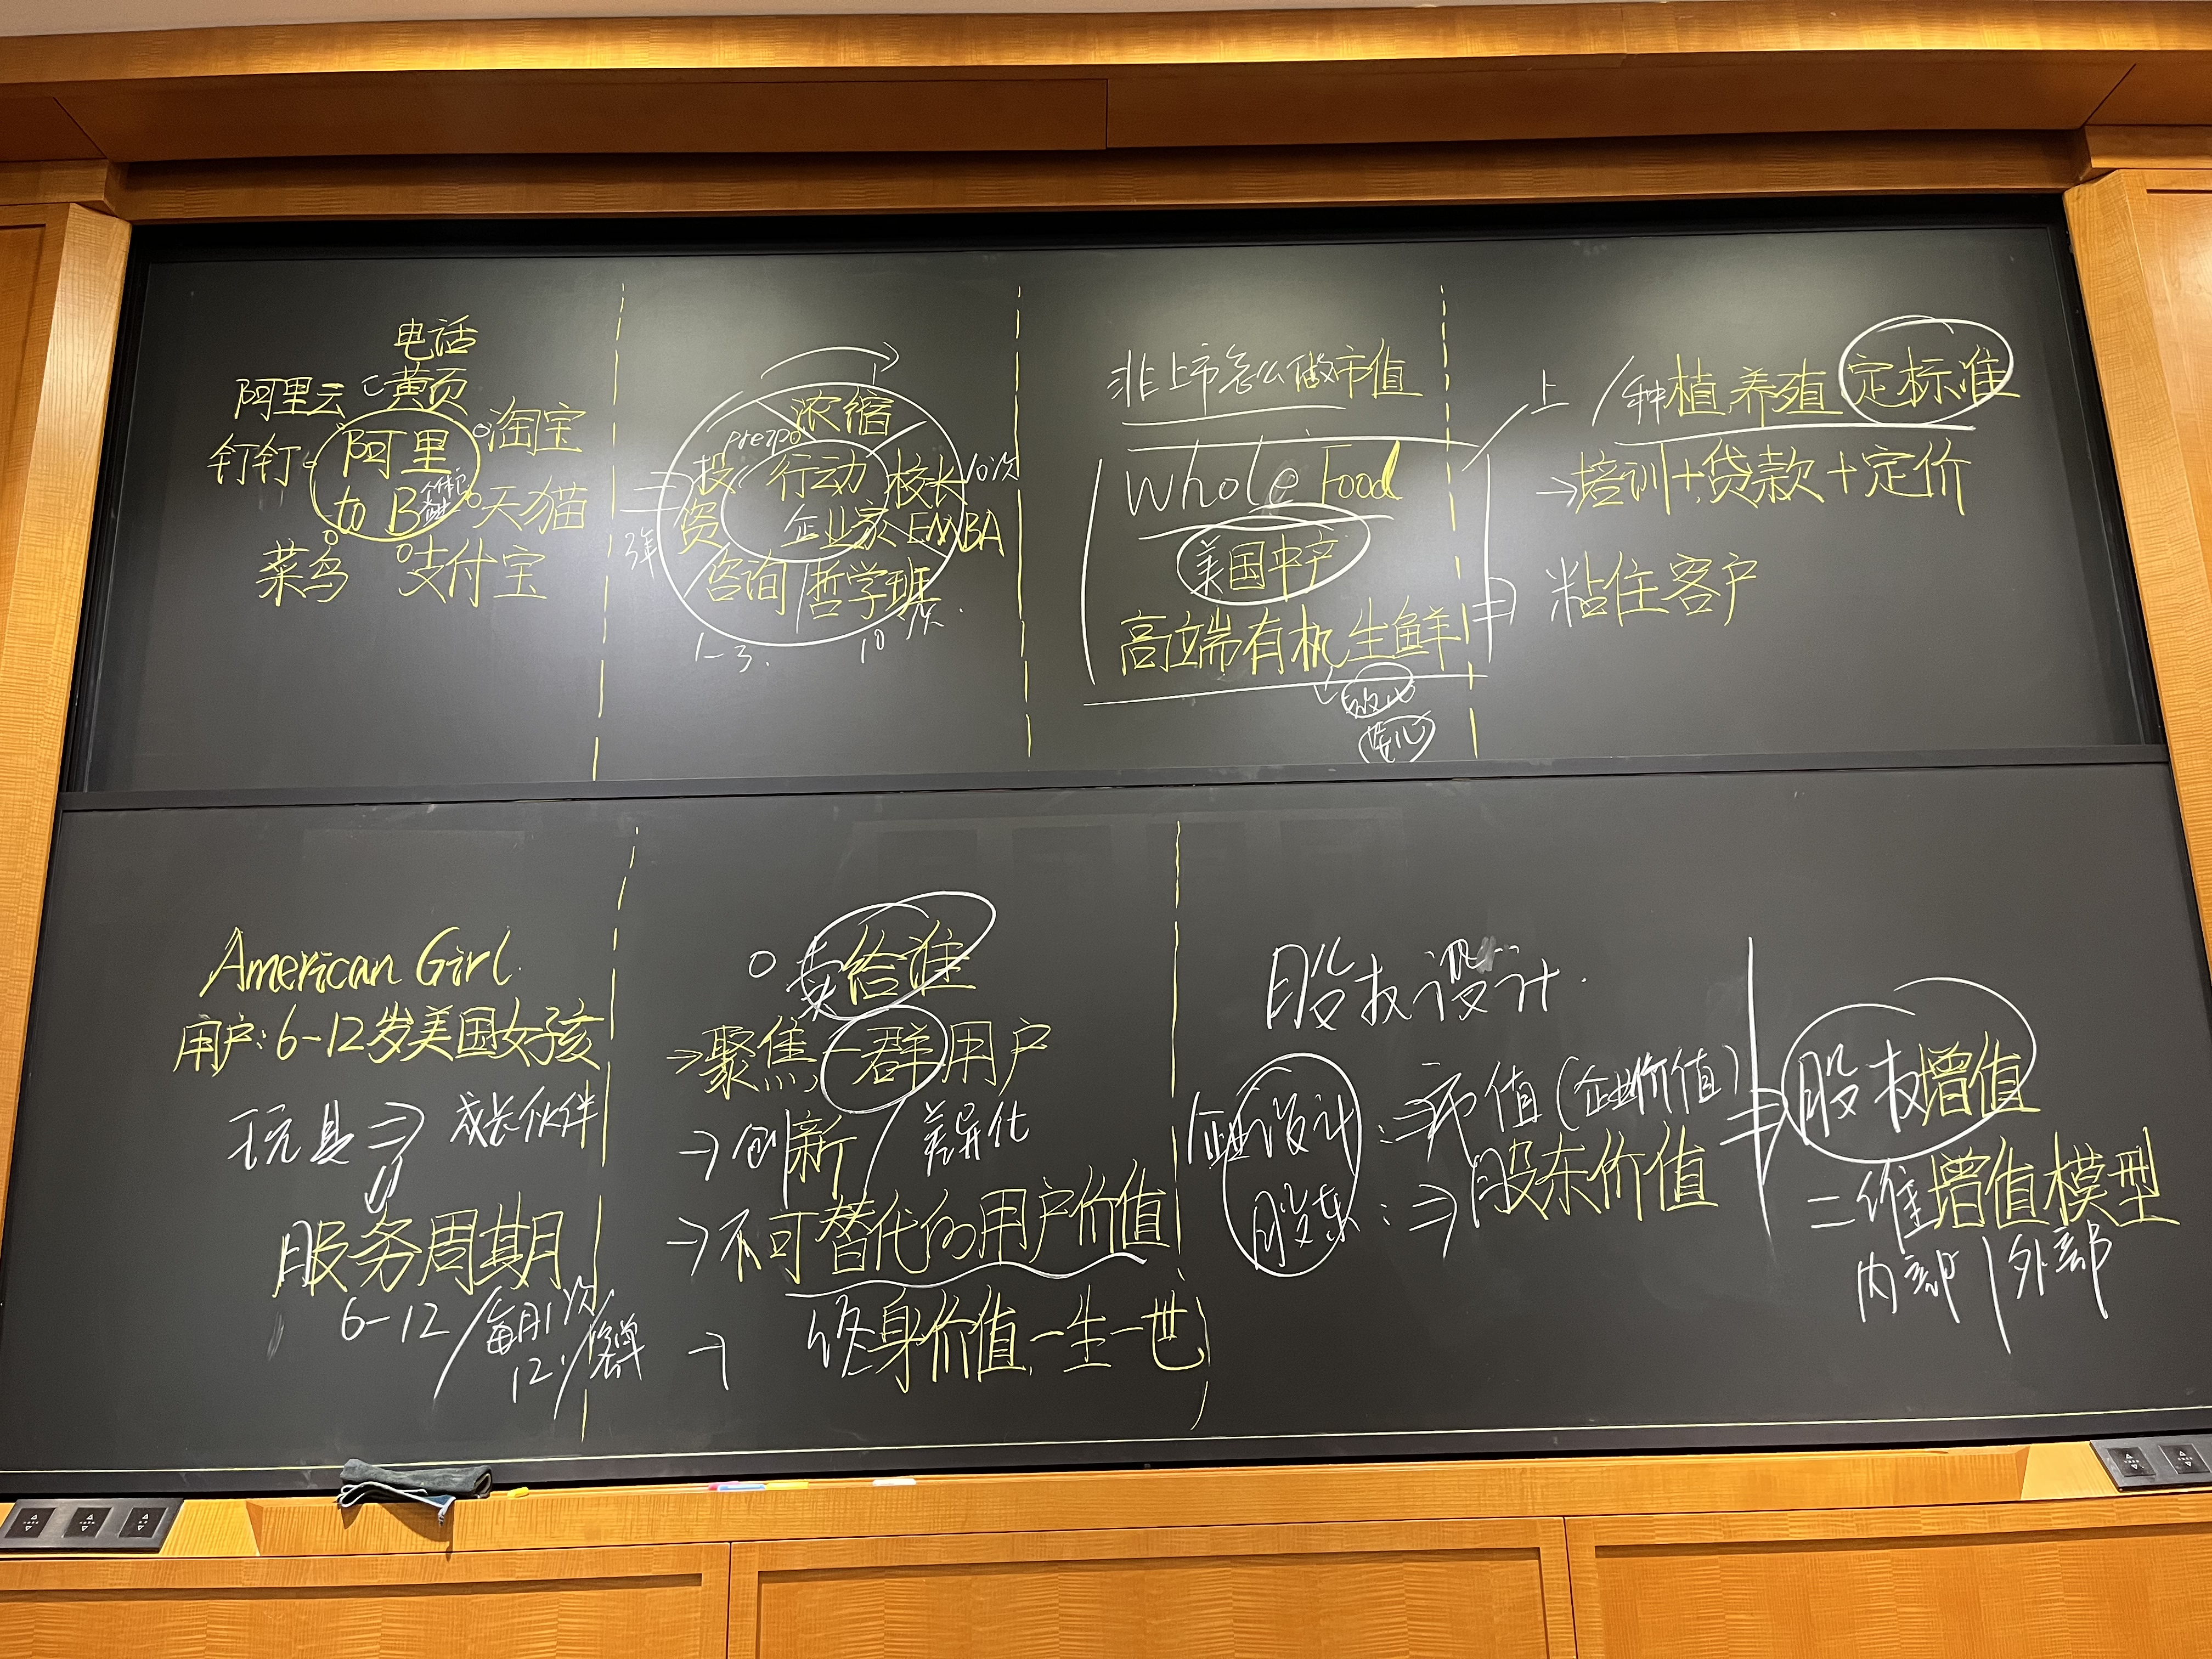 电话
黄页
阿里云
淘宝
钉钉
阿里
to B
天猫
菜鸟
支付宝
浓缩
preIPO
投资
行动
企业家
校长
10次
EMBA
3年
咨询
哲学班
1-3.
10次
非上市怎么做市值
Whole Food
美国中产
高端有机生鲜
上
种植 养殖 定标准
→培训+贷款+定价
⇒ 粘住客户
American Girl
用户:6-12岁美国女孩
玩具⇒成长伙伴
⇓
服务周期
6-12/每月1次/
12/客单
卖给谁
→聚焦一群用户
→创新/差异化
→不可替代的用户价值
→ 终身价值,一生一世
股权设计
企业设计:⇒市值(企业价值)
股东:⇒股东价值
⇒股权增值
二维增值模型
内部|外部